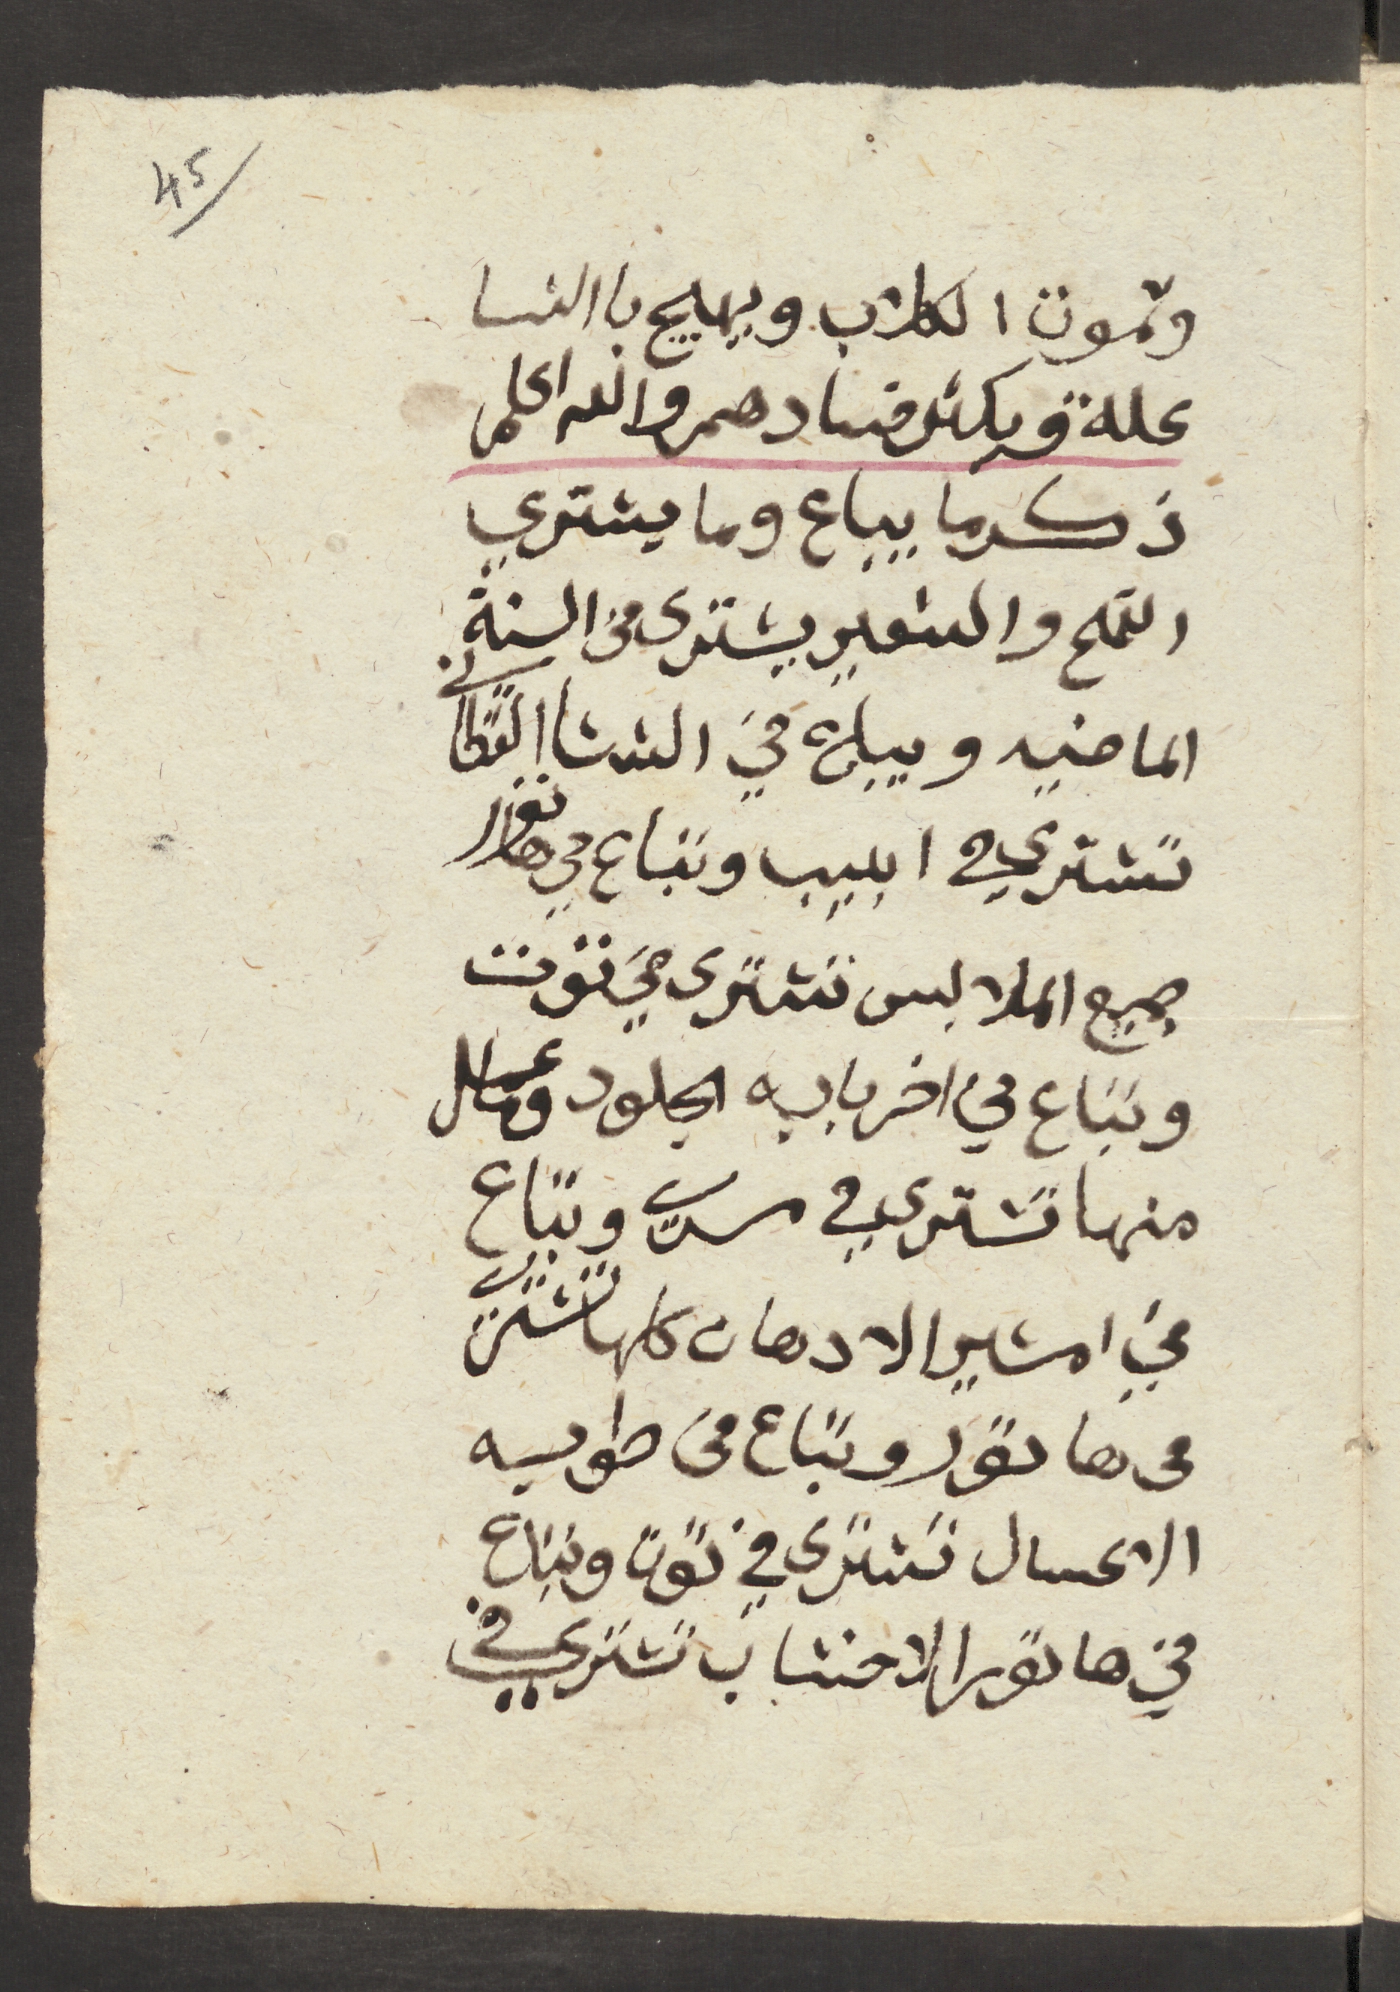 45
وتموت الكلاب ويهيج باالنسا
علة ويكثر فسادهم والله اعلم
ذكر ما يباع وما يشتري
القمح والشعير يشترى من السنة
الماضيه ويباع في الشتا القطاني
تشتري في ابيب وتباع في هاتور
جميع الملابس تشترى في توت
وتباع في اخر بابه الجلود وما عمل
منها تشترى في مسرى وتباع
في امشير الادهان كلها تشترى
فى هاتور وتباع فى طوبه
الاعسال تشترى في توت وتباع
في هاتور الاخشاب تشترى في